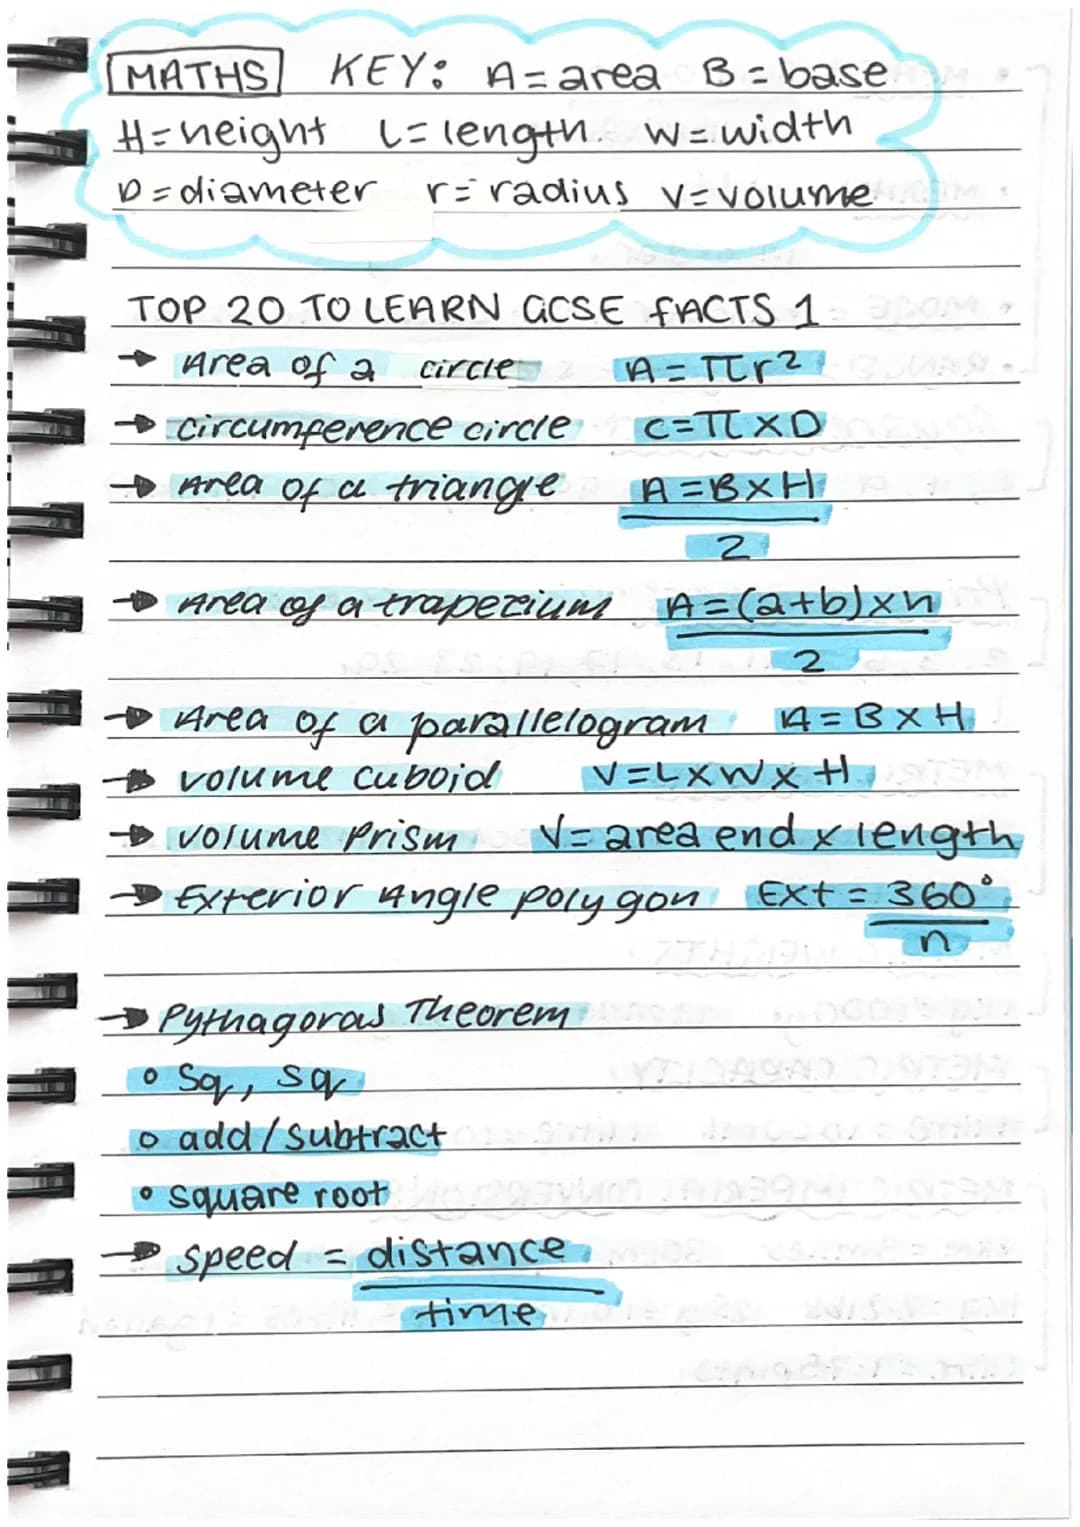 MATHS KEY: A = area B = base
H = height L = length W = width
D = diameter r = radius V = volume
TOP 20 TO LEARN GCSE FACTS 1
→ Area of a circle A = πr²
→ circumference circle C = π × D
→ Area of a triangle A = B × H
2
→ Area of a trapezium A = (a+b) × h
2
→ Area of a parallelogram A = B × H
→ volume cuboid V = L × W × H
→ volume Prism V = area end × length
→ Exterior Angle polygon Ext = 360°
n
→ Pythagoras Theorem
• Sq, sq
• add/subtract
• square root
→ speed = distance
time